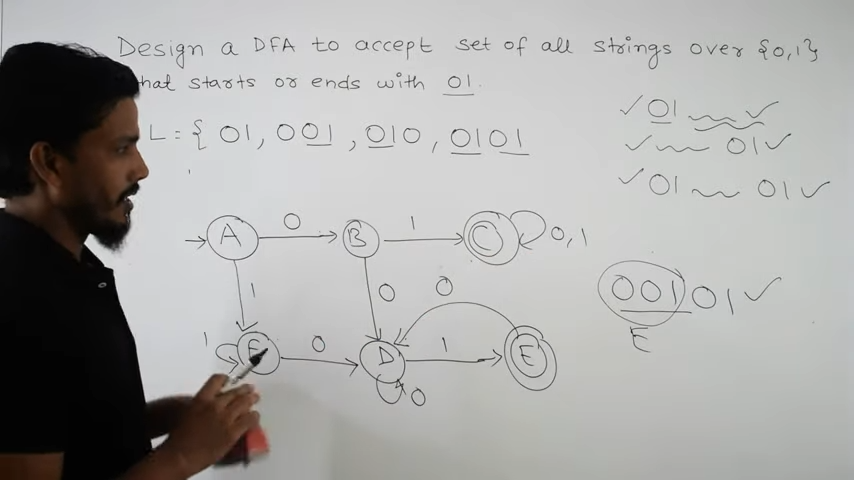 Design a DFA to accept set of all strings over {0,1}
that starts or ends with 01.
L = { 01, 001, 010, 0101
✓ 01 ✓
✓ 01 ✓
✓ 01 01 ✓
A 0 B 1 C 0,1
1 0 0
00101 ✓
E
1 F 0 D 1 E
0